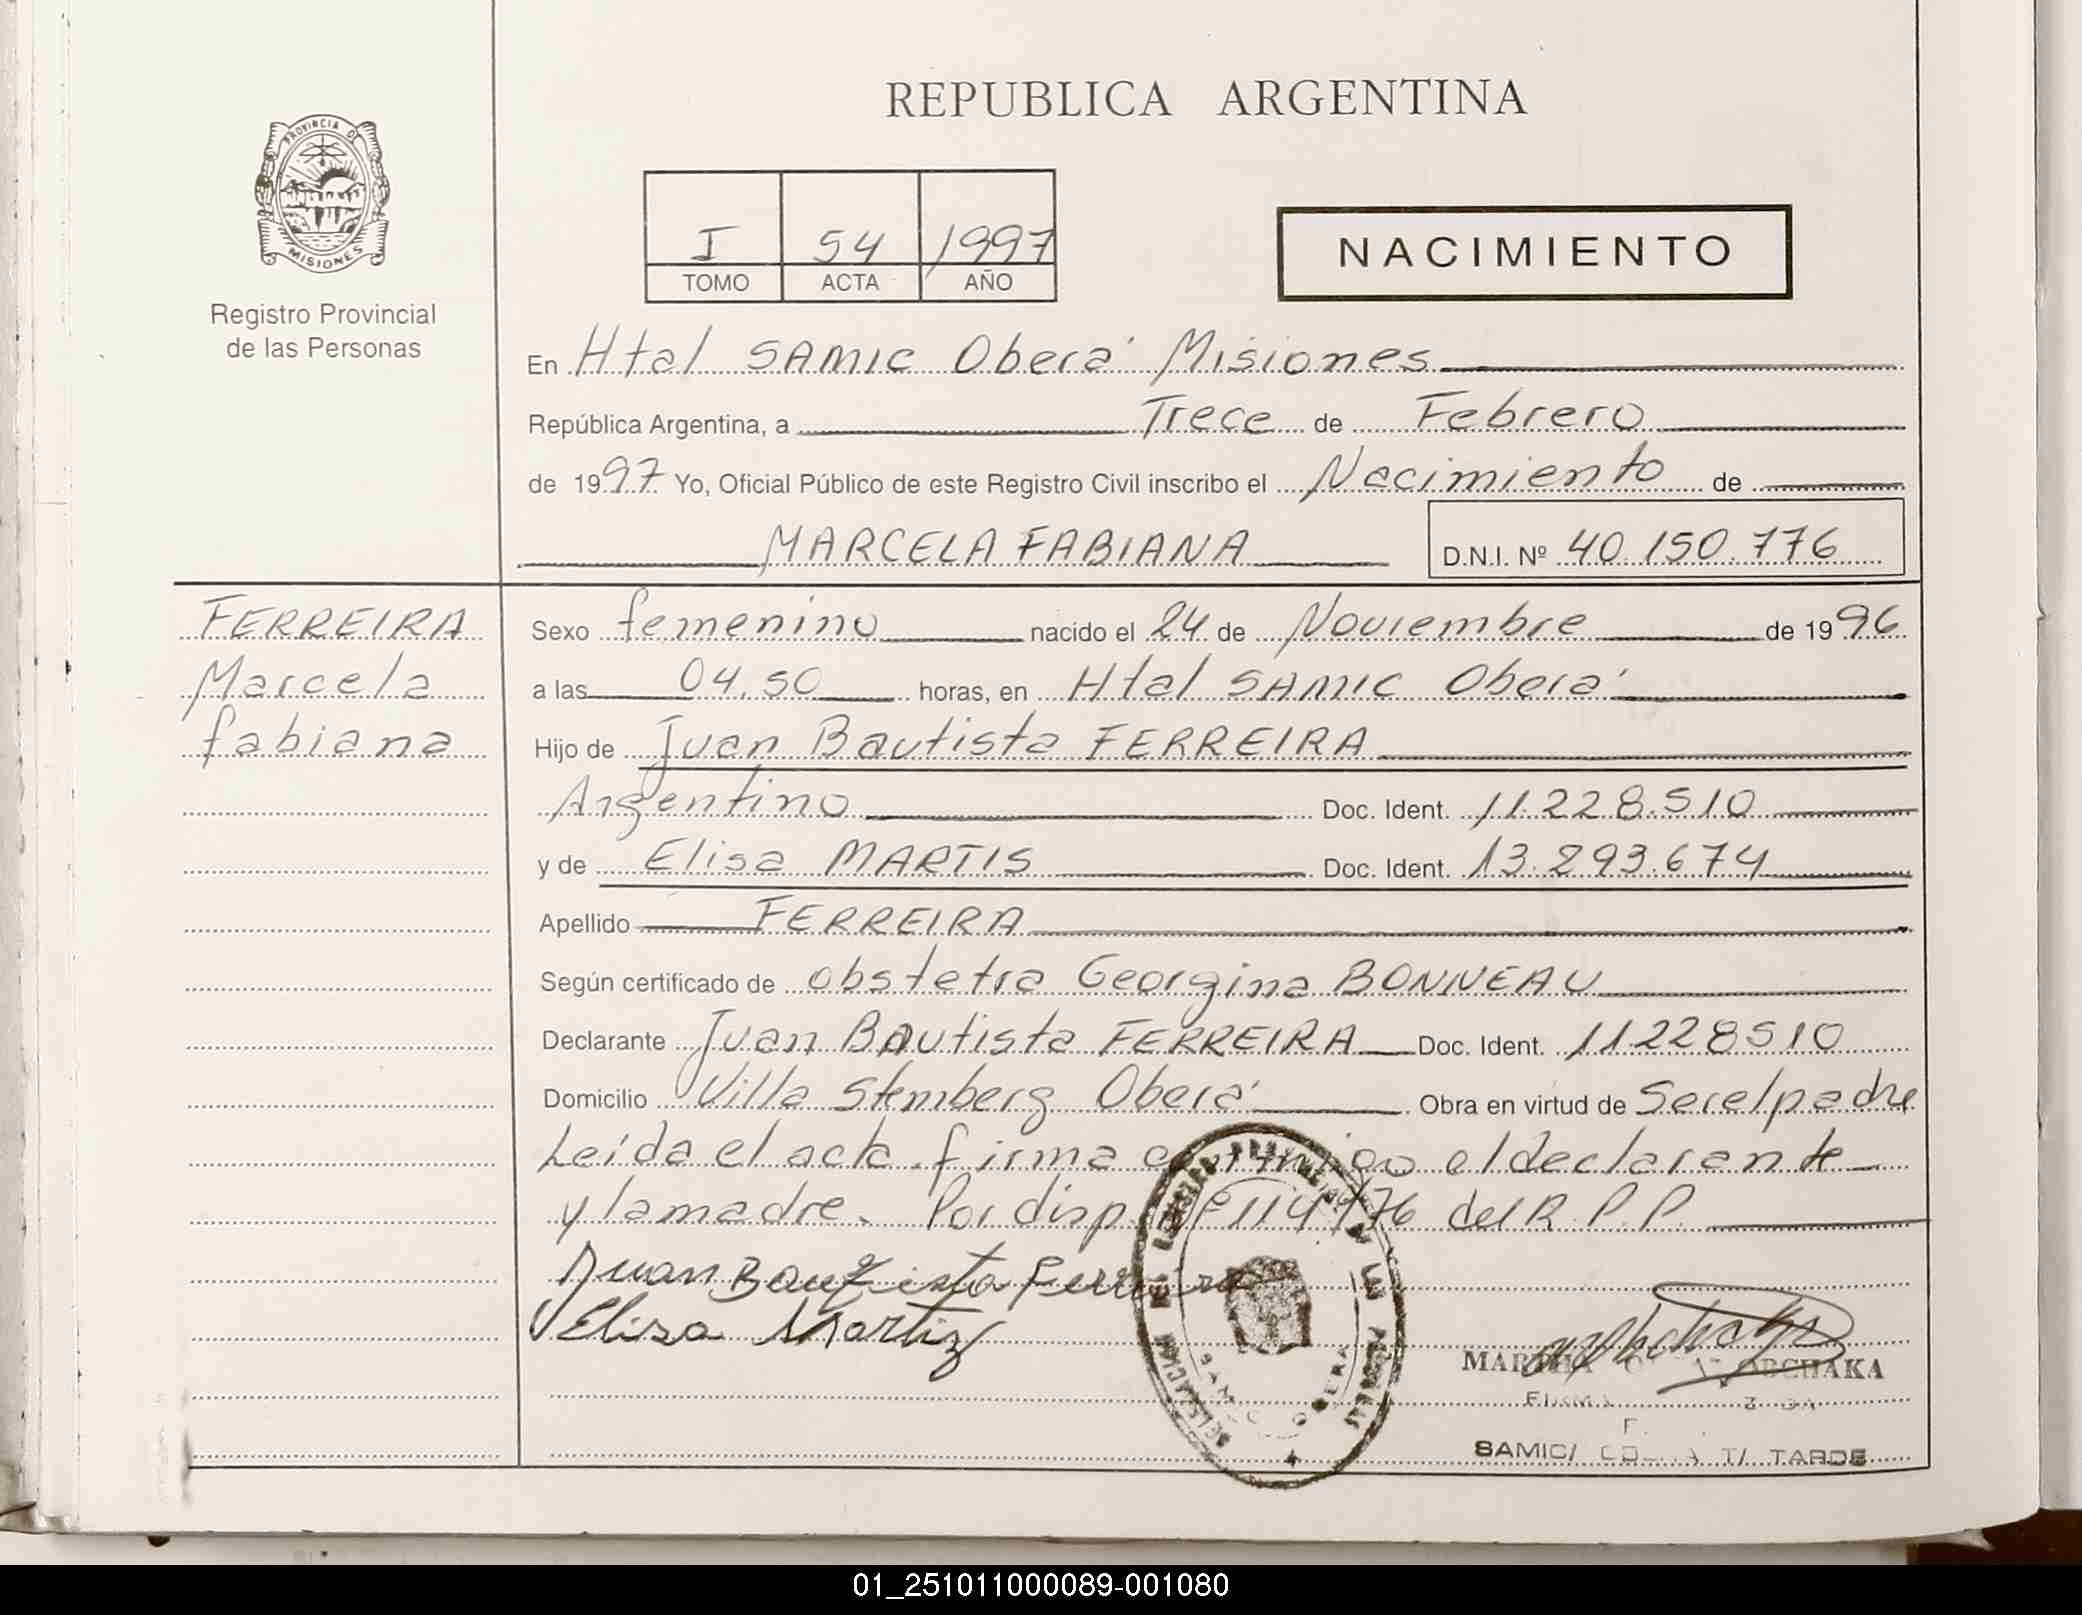 REPUBLICA ARGENTINA
PROVINCIA DE
MISIONES
Registro Provincial
de las Personas
I 54 1997
TOMO ACTA AÑO
NACIMIENTO
En Htal SAMIC Oberá Misiones
República Argentina, a Trece de Febrero
de 1997 Yo, Oficial Público de este Registro Civil inscribo el Nacimiento de
MARCELA FABIANA D.N.I. Nº 40.150.776
FERREIRA
Marcela
fabiana
Sexo femenino nacido el 24 de Noviembre de 1996
a las 04.50 horas, en Htal SAMIC Oberá
Hijo de Juan Bautista FERREIRA
Argentino Doc. Ident. 11.228.510
y de Elisa MARTIS Doc. Ident. 13.293.674
Apellido FERREIRA
Según certificado de obstetra Georgina BONNEAU
Declarante Juan Bautista FERREIRA Doc. Ident. 11228510
Domicilio Villa Stemberg Oberá Obra en virtud de Ser el padre
Leída el acta firma conmigo el declarante
y la madre. Por disp. 114/76 del R.P.P.
Juan Bautista Ferreira
Elisa Martiz
SAMIC/ T/ TARDE
01_251011000089-001080